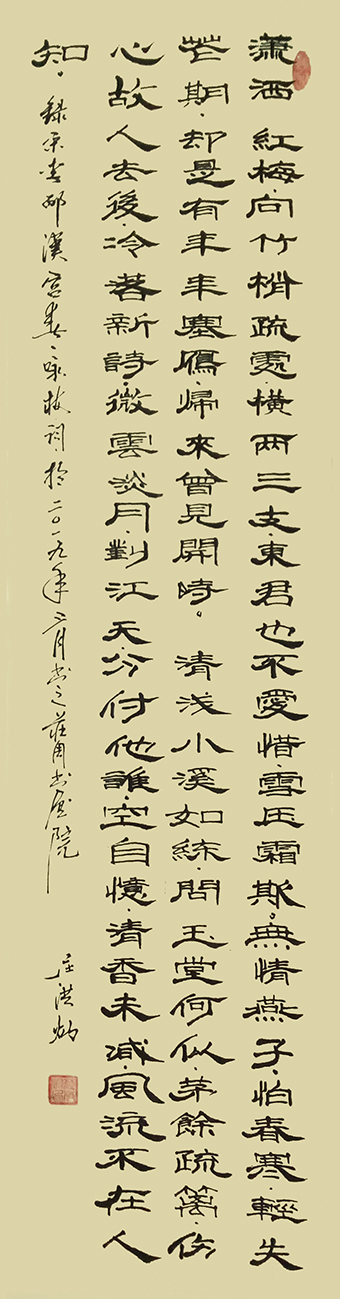 瀟洒紅梅·向竹梢疏處·橫两三支·東君也不愛惜·雪压霜斯。無情燕子·怕春寒·輕失
花期·却是有年年塞鴈·歸來曾見開時。清浅小溪如練·問玉堂何似·茅餘疏篱·伤
心故人去後·冷落新詩·微雲淡月·對江天·分付他誰·空自憶·清香未减·風流不在人
知。
錄宋李邴漢宫春·咏梅詞於二〇一九年三月书之莊周书画院
莊洪灿